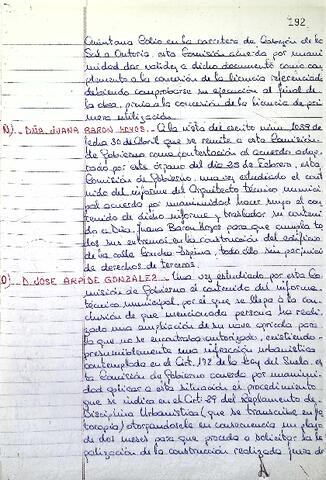 192
Quintana Polio en la carretera de Cabezón de la
Sal a Ontoria, esta Comisión acuerda por unani-
midad dar validez a dicho documento como com-
plemento a la concesión de la licencia referenciada
debiendo comprobarse su ejecución al final de
la obra, previa a la concesión de la licencia de pri-
mera utilización.
N) - DÑA. JUANA BARON HOYOS. - A la vista del escrito núm. 1039 de
fecha 30 de Abril que se remite a esta Comisión
de Gobierno como contestación al acuerdo adop-
tado por este órgano del día 23 de Febrero, esta
Comisión de Gobierno, una vez estudiado el con-
tenido del informe del Arquitecto técnico munici-
pal acuerda por unanimidad hacer suyo el con-
tenido de dicho informe y trasladar su conteni-
do a Dña. Juana Baron Hoyos para que cumpla to-
dos sus extremos en la construcción del edificio
de la calle Concha Espina, todo ello sin perjuicio
de derechos de terceros.
O) - D. JOSE ARPIDE GONZALEZ - Una vez estudiado por esta Co-
misión de Gobierno el contenido del informe
técnico municipal, por el que se llega a la con-
clusión de que mencionada persona ha reali-
zado una ampliación de su nave agrícola para
lo que no se encontraba autorizado, existiendo
presumiblemente una infracción urbanística
contemplada en el Art. 192 de la Ley del Suelo, es-
ta Comisión de Gobierno acuerda por unanimi-
dad aplicar a esta situación el procedimiento
que se indica en el Art. 29 del Reglamento de
Disciplina Urbanística (que se transcribe en fo-
tocopia) otorgándosele en consecuencia un plazo
de dos meses para que proceda a solicitar la le-
galización de la construcción realizada fuera de